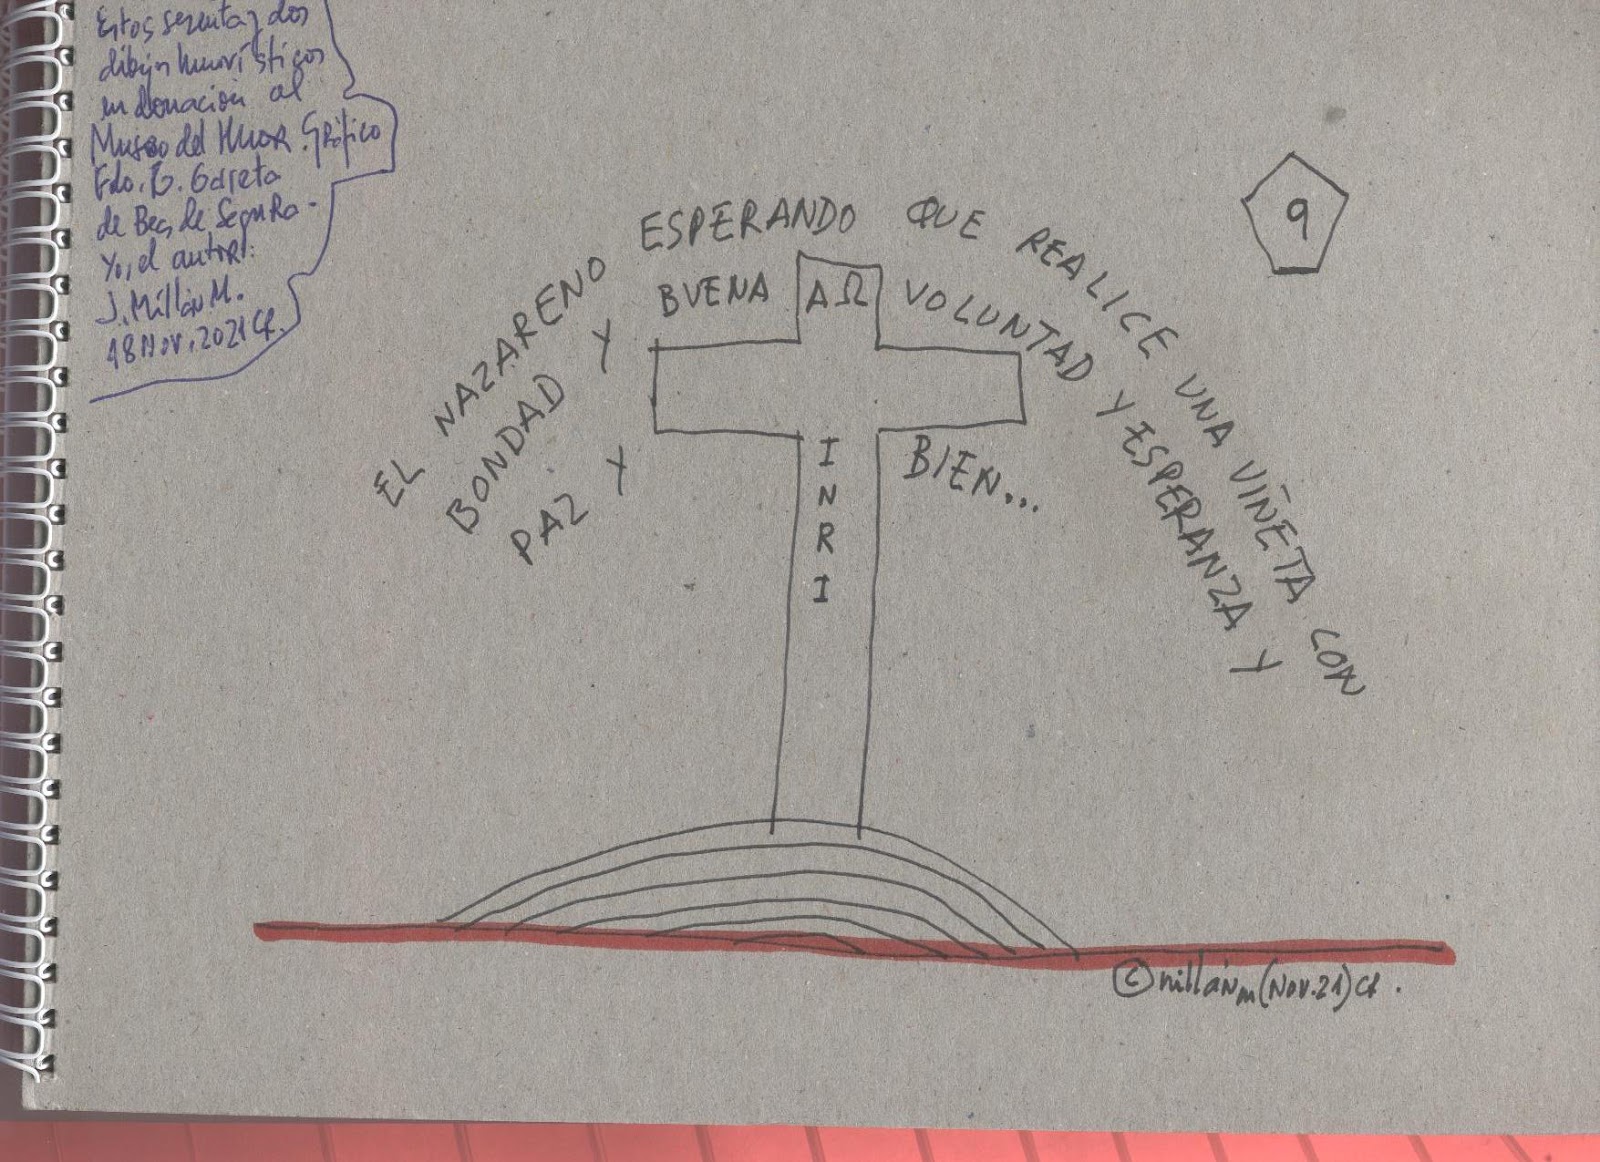 Estos sesenta y dos
dibujos humorísticos
en donación al
Museo del Humor Gráfico
Fdo. B. Garreta
de Bes, de Segura.
Yo, el autor:
J. Millán M.
18 Nov. 2021 Cf.
9
EL NAZARENO ESPERANDO QUE REALICE UNA VIÑETA CON
BONDAD Y BUENA VOLUNTAD Y ESPERANZA Y
PAZ Y BIEN...
AΩ
I
N
R
I
© millán m (Nov. 21) Cf.